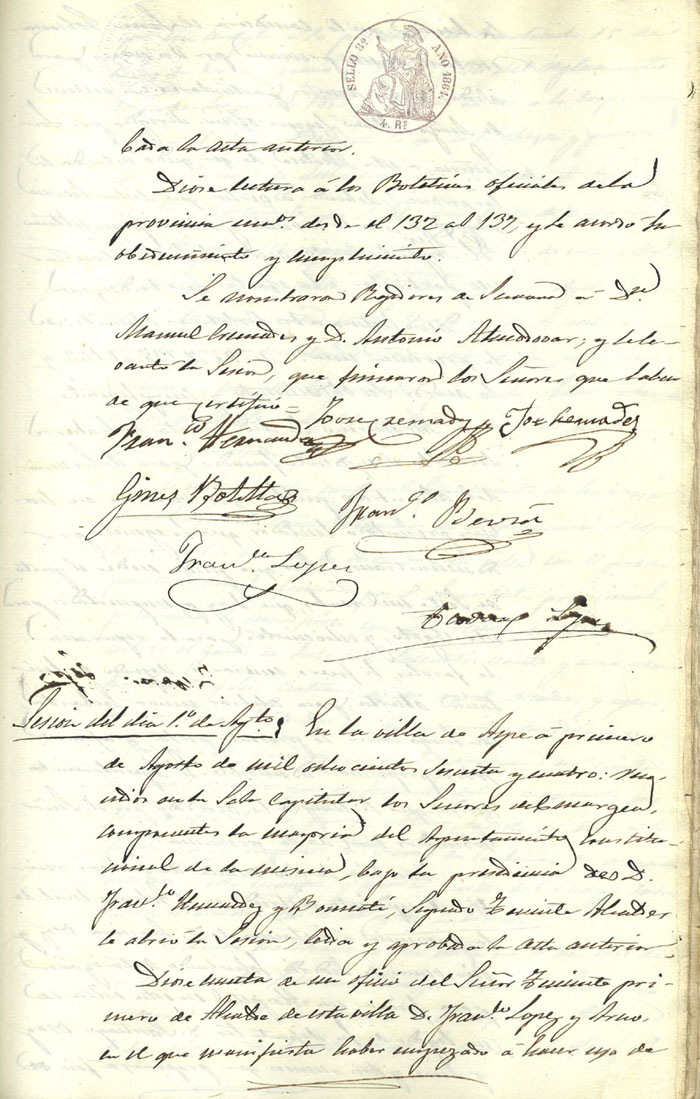 SELLO 8º AÑO 1864.
4. Rs
bada la acta anterior.
Diose lectura á los Boletines oficiales de la
provincia num.s desde el 132 al 137, y se acordó su
obedecimiento y cumplimiento.
Se nombraron Regidores de Semana á D.n
Manuel Cremades y D. Antonio Almodovar; y se le-
vantó la Sesion, que firmaron los Señores que saben
de que certifico =
Jose Cremades
Fran.co Hernandez
Gines Botella
Fran.co
Fran.co Lopez
Lopez
Sesion del dia 1.º de Ag.to
En la villa de Aspe á primero
de Agosto de mil ochocientos sesenta y cuatro: reu-
nidos en la Sala Capitular los Señores del margen,
componentes la mayoria del Ayuntamiento constitu-
cional de la misma, bajo la presidencia de D.
Fran.co Hernandez y Bonmatí, Segundo Teniente Alcalde
se abrió la Sesion, leida y aprobada la acta anterior,
Diose cuenta de un oficio del Señor Teniente pri-
mero de Alcalde de esta villa D. Fran.co Lopez y
en el que manifiesta haber empezado á hacer uso de